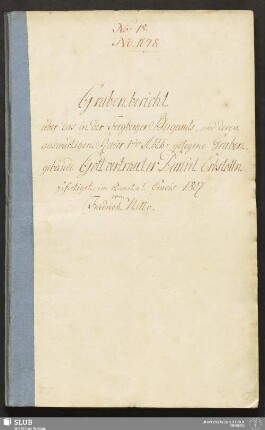 No: 18.
No. 1078
Grubenbericht
über das in der Freyberger Bergamts, und deren
auswärtigem Revier gelegene Gruben,
gebäude Gott vertrauter Daniel Erbstolln
gefertigt im Quartal Crucis 1827
von
Friedrich
SLUB